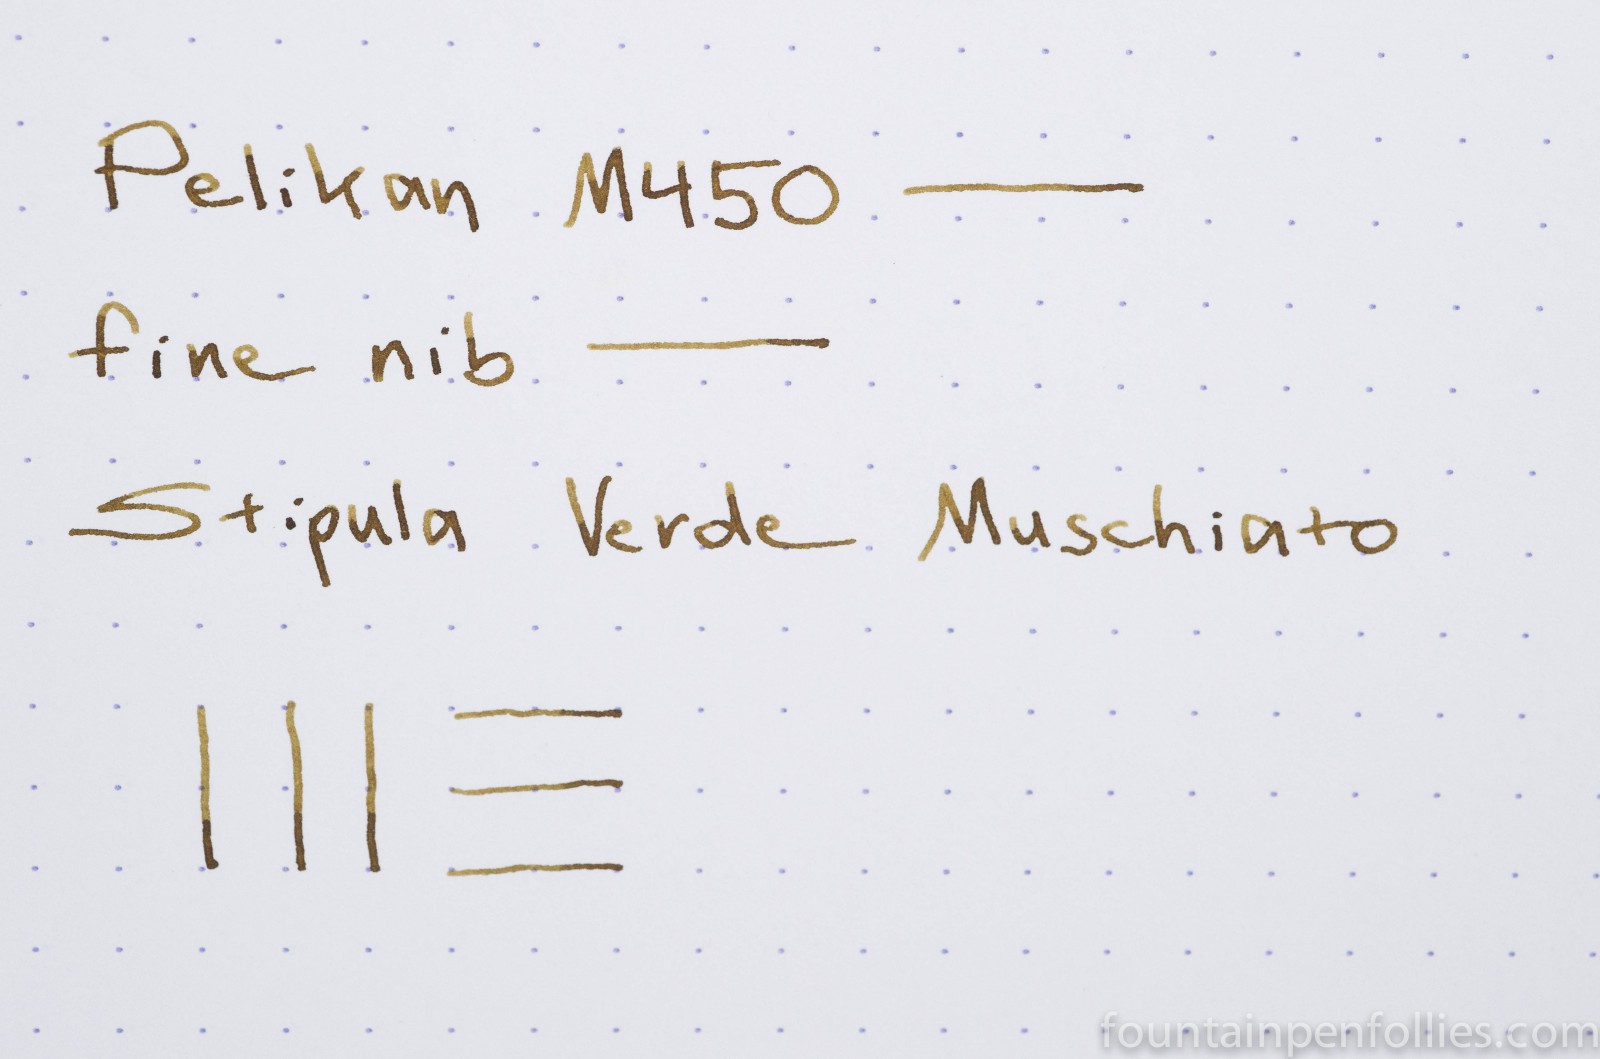 Pelikan M450
fine nib
Stipula Verde Muschiato
fountainpenfollies.com